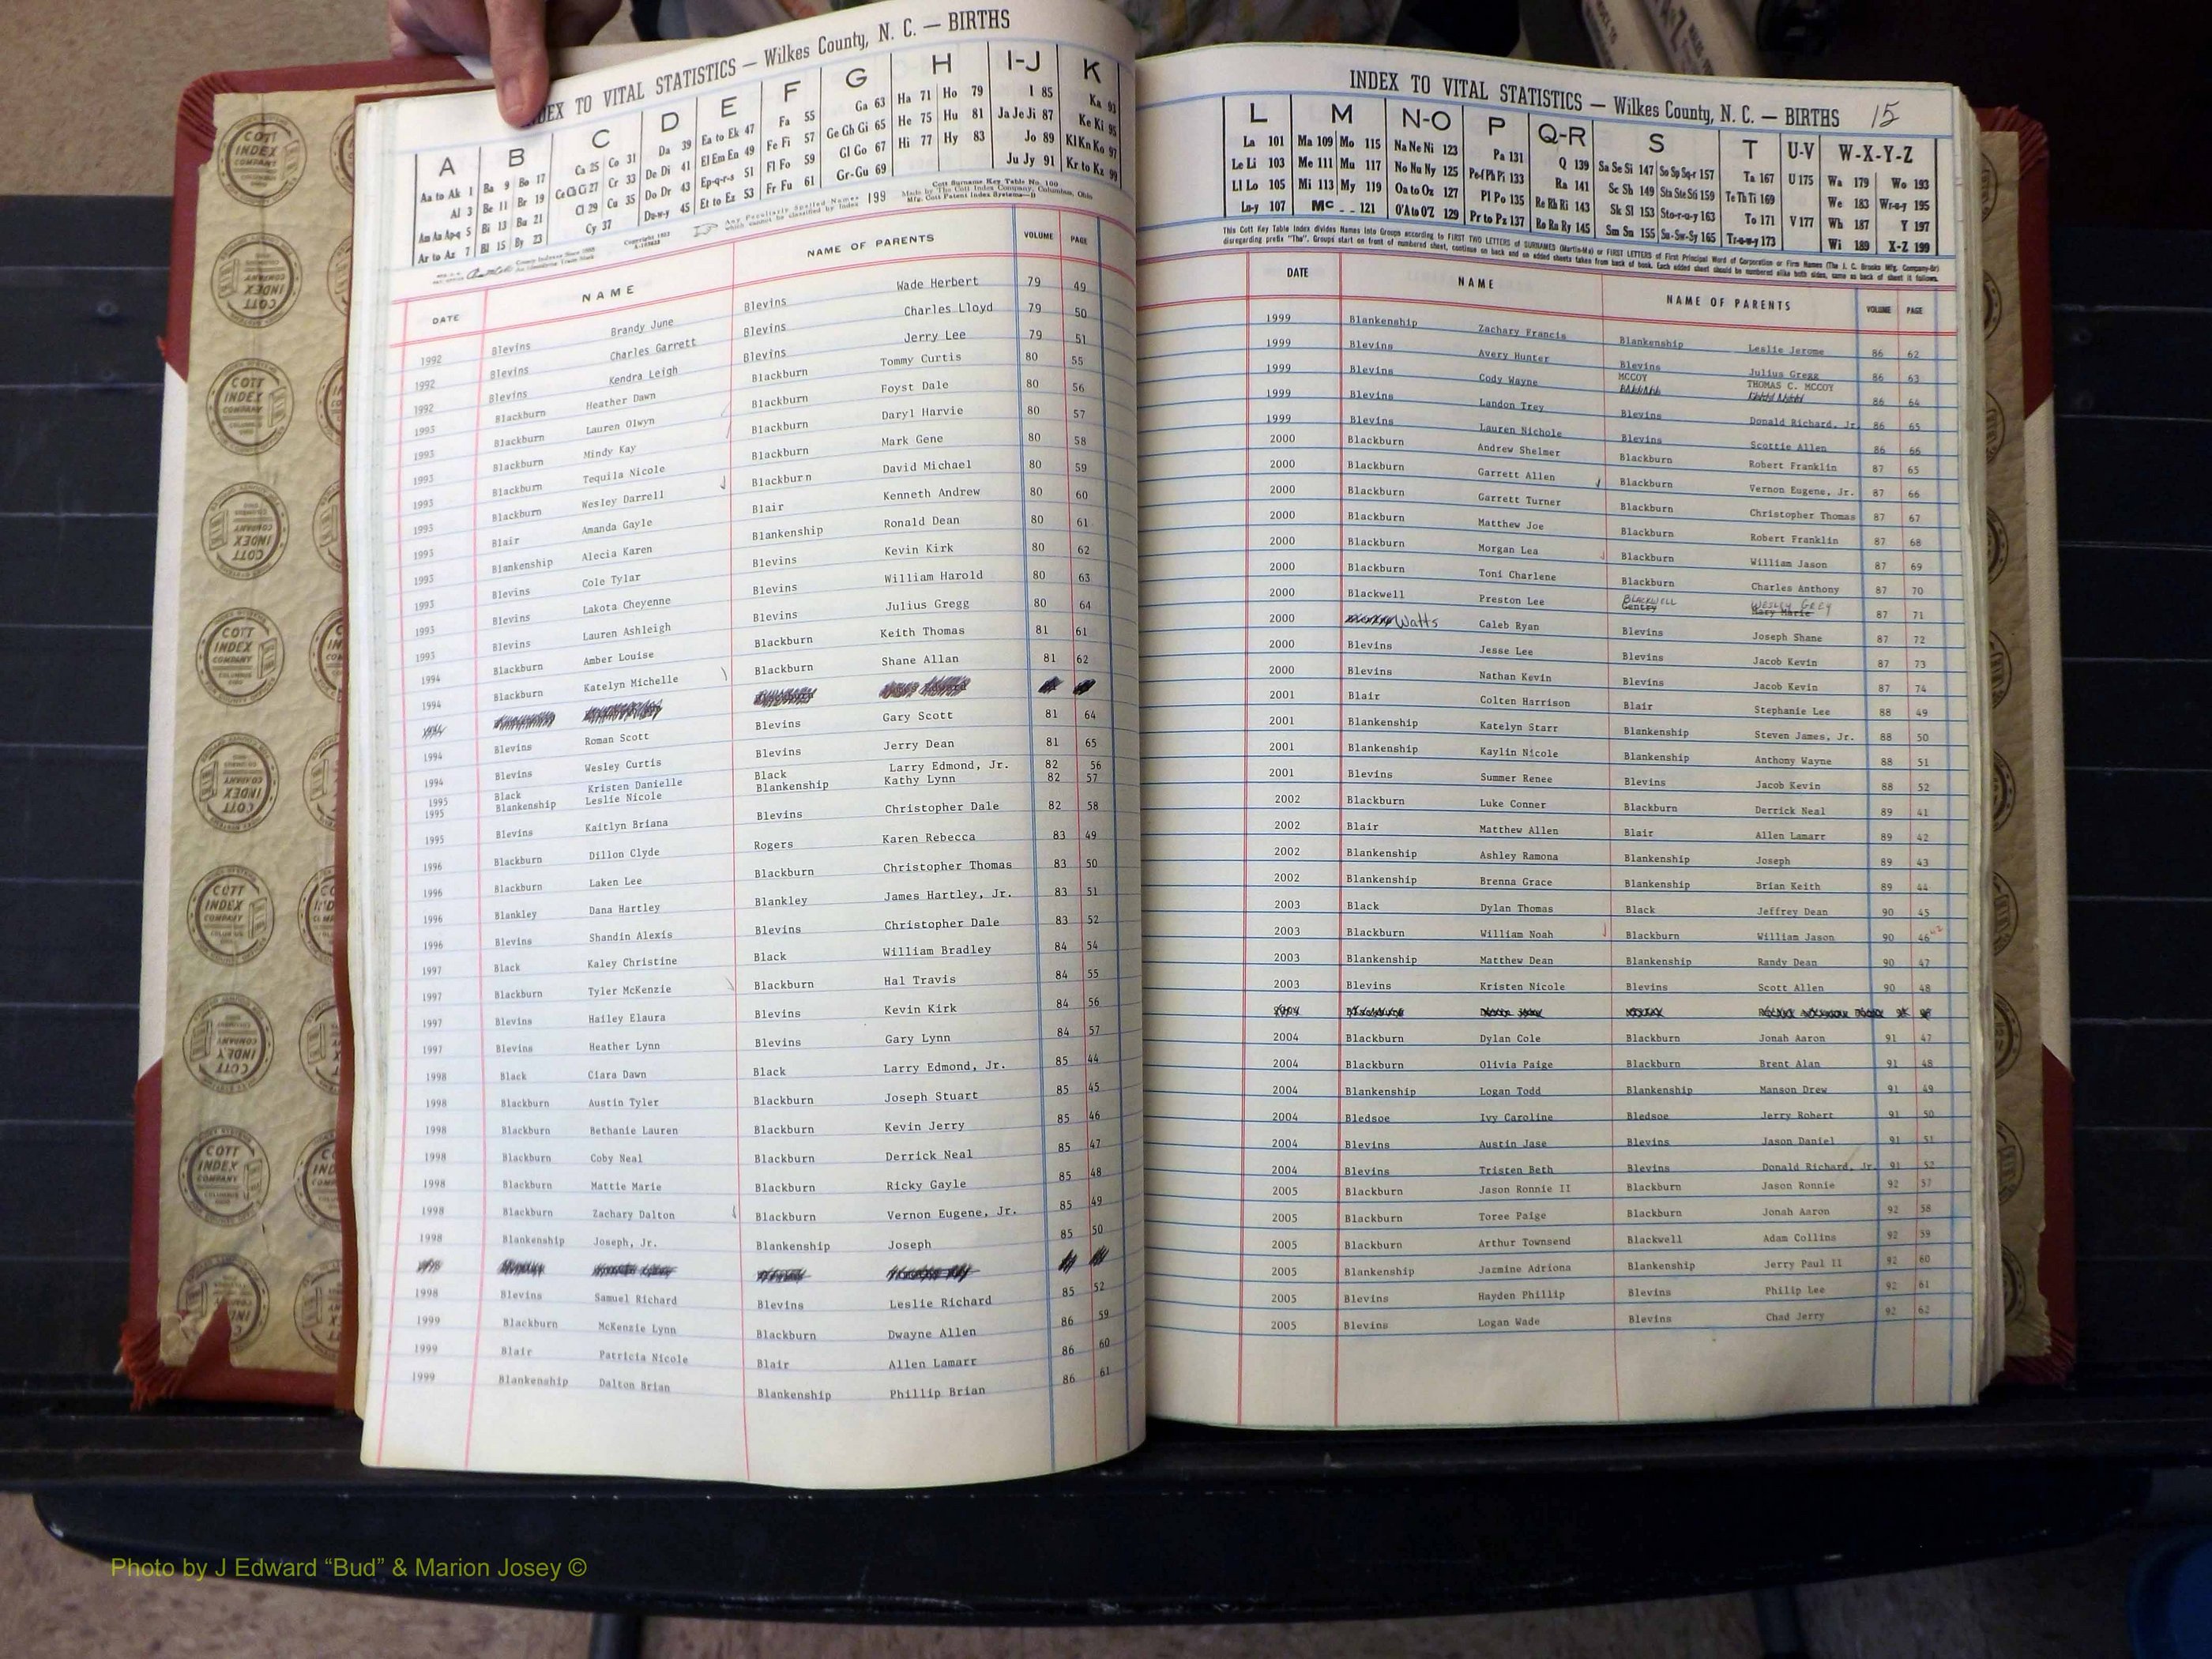 INDEX TO VITAL STATISTICS — Wilkes County, N. C. — BIRTHS
A B C D E F G H I-J K
Aa to Ak 1 Ba 9 Bo 17 Ca 25 Co 31 Da 39 Ea to Ek 47 Fa 55 Ga 63 Ha 71 Ho 79 I 85 Ka 93
Al 3 Be 11 Br 19 Ce Ch Ci 27 Cr 33 De Di 41 El Em En 49 Fe Fi 57 Ge Gh Gi 65 He 75 Hu 81 Ja Je Ji 87 Ke Ki 95
Am An Ap-q 5 Bi 13 Bu 21 Cl 29 Cu 35 Do Dr 43 Ep-q-r-s 51 Fl Fo 59 Gl Go 67 Hi 77 Hy 83 Jo 89 Kl Kn Ko 97
Ar to Az 7 Bl 15 By 23 Cy 37 Du-w-y 45 Et to Ez 53 Fr Fu 61 Gr-Gu 69 Ju Jy 91 Kr to Kz 99
Any Peculiarly Spelled Names which cannot be classified by Index 199
Cott Surname Key Table No. 100
Made by The Cott Index Company, Columbus, Ohio
DATE NAME NAME OF PARENTS VOLUME PAGE
1992 Blevins Brandy June Blevins Wade Herbert 79 49
1992 Blevins Charles Garrett Blevins Charles Lloyd 79 50
1992 Blevins Kendra Leigh Blevins Jerry Lee 79 51
1993 Blackburn Heather Dawn Blackburn Tommy Curtis 80 55
1993 Blackburn Lauren Olwyn Blackburn Foyst Dale 80 56
1993 Blackburn Mindy Kay Blackburn Daryl Harvie 80 57
1993 Blackburn Tequila Nicole Blackburn Mark Gene 80 58
1993 Blackburn Wesley Darrell Blackburn David Michael 80 59
1993 Blair Amanda Gayle Blair Kenneth Andrew 80 60
1993 Blankenship Alecia Karen Blankenship Ronald Dean 80 61
1993 Blevins Cole Tylar Blevins Kevin Kirk 80 62
1993 Blevins Lakota Cheyenne Blevins William Harold 80 63
1993 Blevins Lauren Ashleigh Blevins Julius Gregg 80 64
1994 Blackburn Amber Louise Blackburn Keith Thomas 81 61
1994 Blackburn Katelyn Michelle Blackburn Shane Allan 81 62
1994 Blevins Roman Scott Blevins Gary Scott 81 64
1994 Blevins Wesley Curtis Blevins Jerry Dean 81 65
1995 Black Kristen Danielle Black Larry Edmond, Jr. 82 56
1995 Blankenship Leslie Nicole Blankenship Kathy Lynn 82 57
1995 Blevins Kaitlyn Briana Blevins Christopher Dale 82 58
1996 Blackburn Dillon Clyde Rogers Karen Rebecca 83 49
1996 Blackburn Laken Lee Blackburn Christopher Thomas 83 50
1996 Blankley Dana Hartley Blankley James Hartley, Jr. 83 51
1996 Blevins Shandin Alexis Blevins Christopher Dale 83 52
1997 Black Kaley Christine Black William Bradley 84 54
1997 Blackburn Tyler McKenzie Blackburn Hal Travis 84 55
1997 Blevins Hailey Elaura Blevins Kevin Kirk 84 56
1997 Blevins Heather Lynn Blevins Gary Lynn 84 57
1998 Black Ciara Dawn Black Larry Edmond, Jr. 85 44
1998 Blackburn Austin Tyler Blackburn Joseph Stuart 85 45
1998 Blackburn Bethanie Lauren Blackburn Kevin Jerry 85 46
1998 Blackburn Coby Neal Blackburn Derrick Neal 85 47
1998 Blackburn Mattie Marie Blackburn Ricky Gayle 85 48
1998 Blackburn Zachary Dalton Blackburn Vernon Eugene, Jr. 85 49
1998 Blankenship Joseph, Jr. Blankenship Joseph 85 50
1998 Blevins Samuel Richard Blevins Leslie Richard 85 52
1999 Blackburn McKenzie Lynn Blackburn Dwayne Allen 86 59
1999 Blair Patricia Nicole Blair Allen Lamarr 86 60
1999 Blankenship Dalton Brian Blankenship Phillip Brian 86 61
INDEX TO VITAL STATISTICS — Wilkes County, N. C. — BIRTHS 15
L M N-O P Q-R S T U-V W-X-Y-Z
La 101 Ma 109 Mo 115 Na Ne Ni 123 Pa 131 Q 139 Sa Se Si 147 So Sp Sq-r 157 Ta 167 U 175 Wa 179 Wo 193
Le Li 103 Me 111 Mu 117 No Nu Ny 125 Pe-f Ph Pi 133 Ra 141 Sc Sh 149 Sta Ste Sti 159 Te Th Ti 169 We 183 Wr-u-y 195
Ll Lo 105 Mi 113 My 119 Oa to Oz 127 Pl Po 135 Re Rh Ri 143 Sk Sl 153 Sto-r-u-y 163 To 171 V 177 Wh 187 Y 197
Lu-y 107 Mc 121 O'A to O'Z 129 Pr to Pz 137 Ro Ru Ry 145 Sm Sn 155 Su-Sw-Sy 165 Tr-u-w-y 173 Wi 189 X-Z 199
This Cott Key Table Index divides Names into Groups according to FIRST TWO LETTERS of SURNAMES (Martin-Ma) or FIRST LETTERS of First Principal Word of Corporation or Firm Names (The I. C. Brooks Mfg. Company-Br)
disregarding prefix "The". Groups start on front of numbered sheet, continue on back and on added sheets taken from back of book. Each added sheet should be numbered alike both sides, same as back of sheet it follows.
DATE NAME NAME OF PARENTS VOLUME PAGE
1999 Blankenship Zachary Francis Blankenship Leslie Jerome 86 62
1999 Blevins Avery Hunter Blevins Julius Gregg 86 63
1999 Blevins Cody Wayne MCCOY THOMAS C. MCCOY 86 64
1999 Blevins Landon Trey Blevins Donald Richard, Jr. 86 65
1999 Blevins Lauren Nichole Blevins Scottie Allen 86 66
2000 Blackburn Andrew Shelmer Blackburn Robert Franklin 87 65
2000 Blackburn Garrett Allen Blackburn Vernon Eugene, Jr. 87 66
2000 Blackburn Garrett Turner Blackburn Christopher Thomas 87 67
2000 Blackburn Matthew Joe Blackburn Robert Franklin 87 68
2000 Blackburn Morgan Lea Blackburn William Jason 87 69
2000 Blackburn Toni Charlene Blackburn Charles Anthony 87 70
2000 Blackwell Preston Lee BLACKWELL Gentry WESLEY GREY Mary Marie 87 71
2000 Watts Caleb Ryan Blevins Joseph Shane 87 72
2000 Blevins Jesse Lee Blevins Jacob Kevin 87 73
2000 Blevins Nathan Kevin Blevins Jacob Kevin 87 74
2001 Blair Colten Harrison Blair Stephanie Lee 88 49
2001 Blankenship Katelyn Starr Blankenship Steven James, Jr. 88 50
2001 Blankenship Kaylin Nicole Blankenship Anthony Wayne 88 51
2001 Blevins Summer Renee Blevins Jacob Kevin 88 52
2002 Blackburn Luke Conner Blackburn Derrick Neal 89 41
2002 Blair Matthew Allen Blair Allen Lamarr 89 42
2002 Blankenship Ashley Ramona Blankenship Joseph 89 43
2002 Blankenship Brenna Grace Blankenship Brian Keith 89 44
2003 Black Dylan Thomas Black Jeffrey Dean 90 45
2003 Blackburn William Noah Blackburn William Jason 90 46
2003 Blankenship Matthew Dean Blankenship Randy Dean 90 47
2003 Blevins Kristen Nicole Blevins Scott Allen 90 48
2004 Blackburn Dylan Cole Blackburn Jonah Aaron 91 47
2004 Blackburn Olivia Paige Blackburn Brent Alan 91 48
2004 Blankenship Logan Todd Blankenship Manson Drew 91 49
2004 Bledsoe Ivy Caroline Bledsoe Jerry Robert 91 50
2004 Blevins Austin Jase Blevins Jason Daniel 91 51
2004 Blevins Tristen Beth Blevins Donald Richard, Jr. 91 52
2005 Blackburn Jason Ronnie II Blackburn Jason Ronnie 92 57
2005 Blackburn Toree Paige Blackburn Jonah Aaron 92 58
2005 Blackburn Arthur Townsend Blackwell Adam Collins 92 59
2005 Blankenship Jazmine Adriona Blankenship Jerry Paul II 92 60
2005 Blevins Hayden Phillip Blevins Philip Lee 92 61
2005 Blevins Logan Wade Blevins Chad Jerry 92 62
Photo by J Edward “Bud” & Marion Josey ©